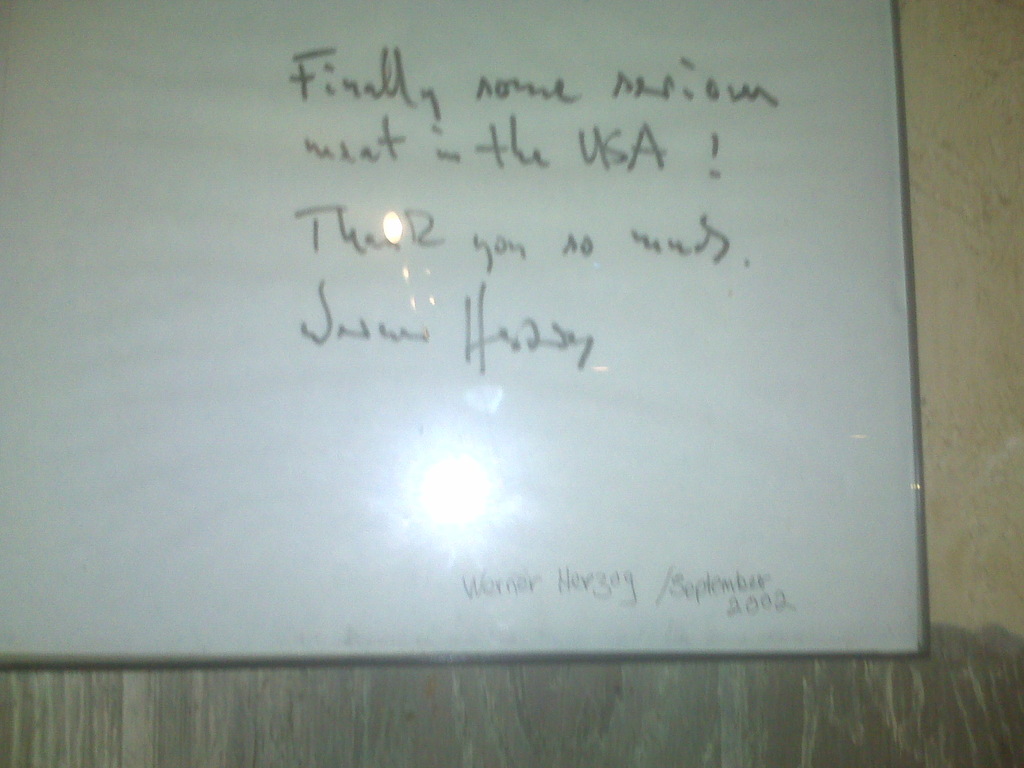 Finally some serious
meat in the USA !
Thank you so much.
Werner Herzog
Werner Herzog /September
2002